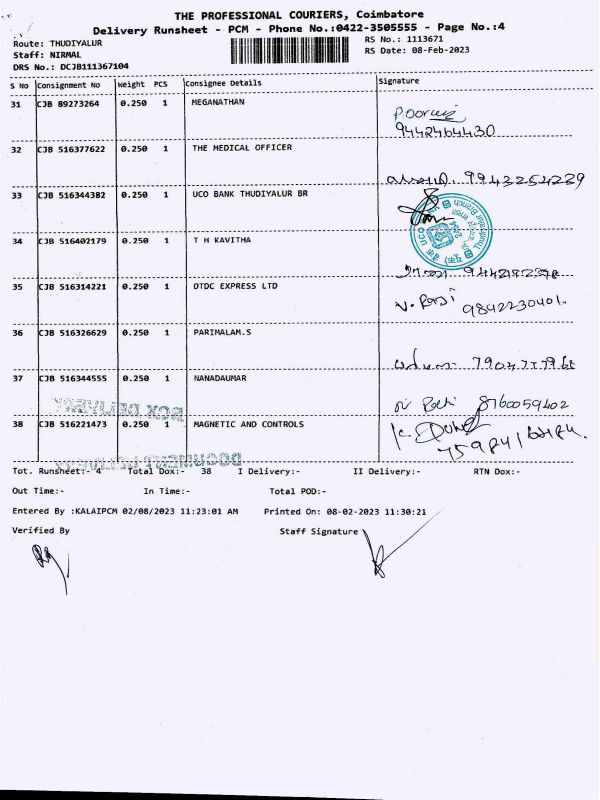 THE PROFESSIONAL COURIERS, Coimbatore
Delivery Runsheet - PCM - Phone No.:0422-3505555 - Page No.:4
Route: THUDIYALUR
RS No.: 1113671
Staff: NIRMAL
RS Date: 08-Feb-2023
DRS No.: DCJB111367104
S No Consignment No Weight PCS Consignee Details Signature
31 CJB 89273264 0.250 1 MEGANATHAN
9442464430
32 CJB 516377622 0.250 1 THE MEDICAL OFFICER
9943254239
33 CJB 516344382 0.250 1 UCO BANK THUDIYALUR BR
34 CJB 516402179 0.250 1 T H KAVITHA
35 CJB 516314221 0.250 1 DTDC EXPRESS LTD
9842230401.
36 CJB 516326629 0.250 1 PARIMALAM.S
37 CJB 516344555 0.250 1 NANADAUMAR
8760059402
BOX DELIVERY
38 CJB 516221473 0.250 1 MAGNETIC AND CONTROLS
Tot. Runsheet:- 4 Total Dox:- 38 I Delivery:- II Delivery:- RTN Dox:-
Out Time:- In Time:- Total POD:-
Entered By :KALAIPCM 02/08/2023 11:23:01 AM Printed On: 08-02-2023 11:30:21
Verified By Staff Signature